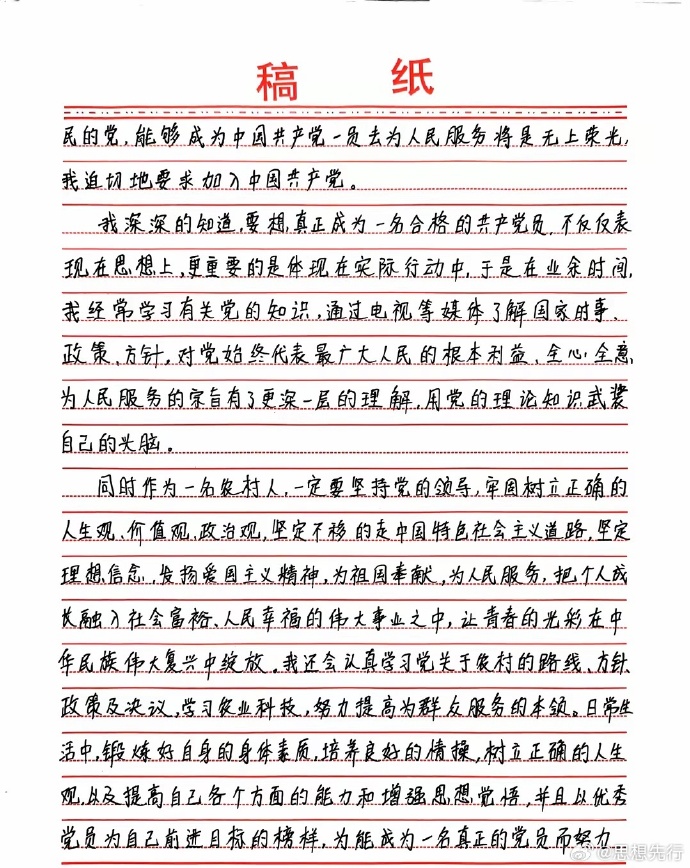 稿 纸
民的党,能够成为中国共产党一员去为人民服务将是无上荣光,
我迫切地要求加入中国共产党。
我深深的知道,要想真正成为一名合格的共产党员,不仅仅表
现在思想上,更重要的是体现在实际行动中,于是在业余时间,
我经常学习有关党的知识,通过电视等媒体了解国家时事、
政策、方针,对党始终代表最广大人民的根本利益、全心全意
为人民服务的宗旨有了更深一层的理解,用党的理论知识武装
自己的头脑。
同时作为一名农村人,一定要坚持党的领导,牢固树立正确的
人生观、价值观、政治观,坚定不移的走中国特色社会主义道路,坚定
理想信念,发扬爱国主义精神,为祖国奉献,为人民服务,把个人成
长融入社会富裕、人民幸福的伟大事业之中,让青春的光彩在中
华民族伟大复兴中绽放。我还会认真学习党关于农村的路线、方针、
政策及决议,学习农业科技,努力提高为群众服务的本领。日常生
活中,锻炼好自身的身体素质,培养良好的情操,树立正确的人生
观,以及提高自己各个方面的能力和增强思想觉悟,并且以优秀
党员为自己前进目标的榜样,为能成为一名真正的党员而努力
@思想先行